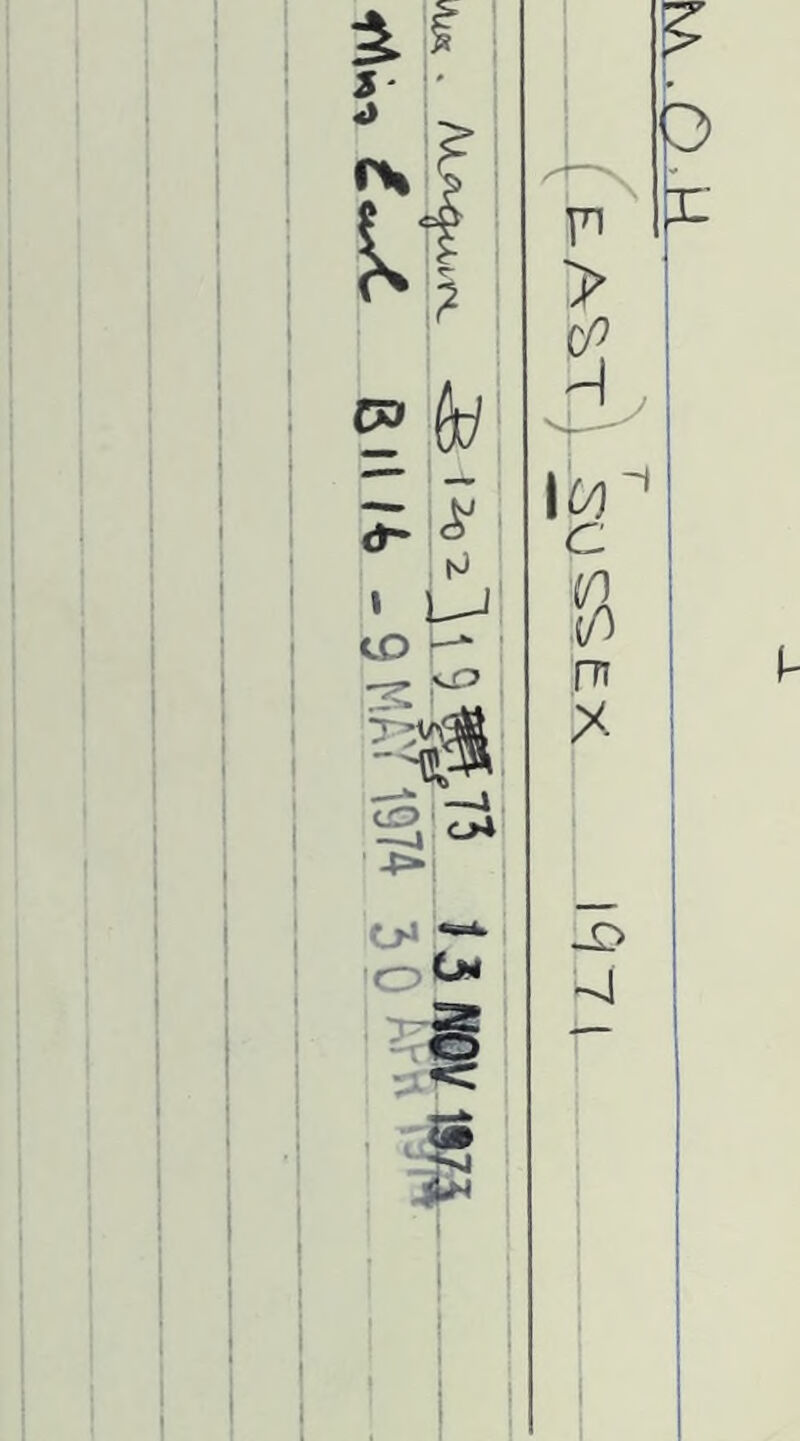 M.O.H
T
(EAST) SUSSEX 1971
Maguire B1202] 19 SEP 73 13 NOV 1973
Miss Earl B1116 - 9 MAY 1974 30 APR 1974